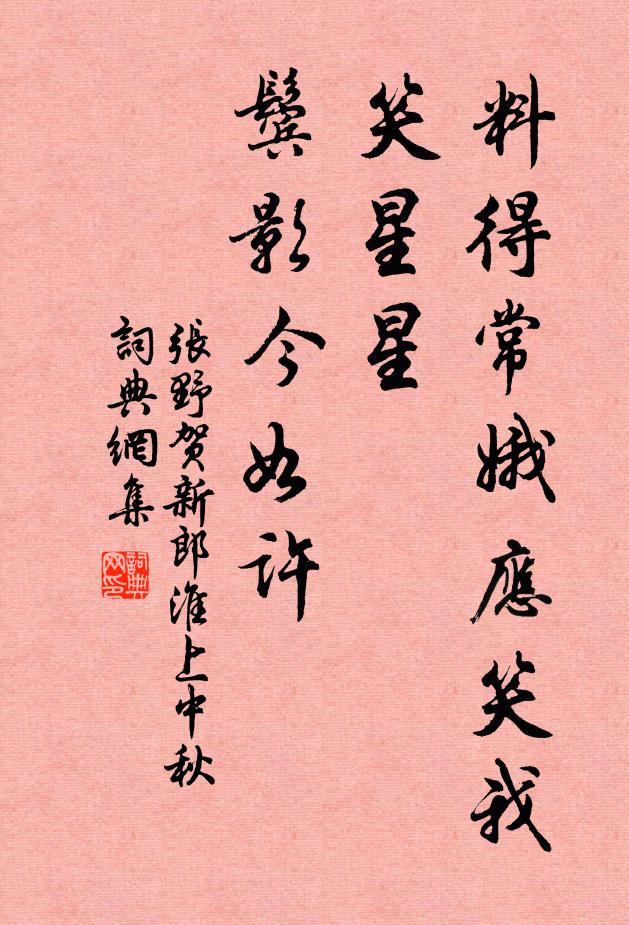 料得常娥應笑我
笑星星
鬓影今如許
張野賀新郎淮上中秋
詞典網集
詞典网印